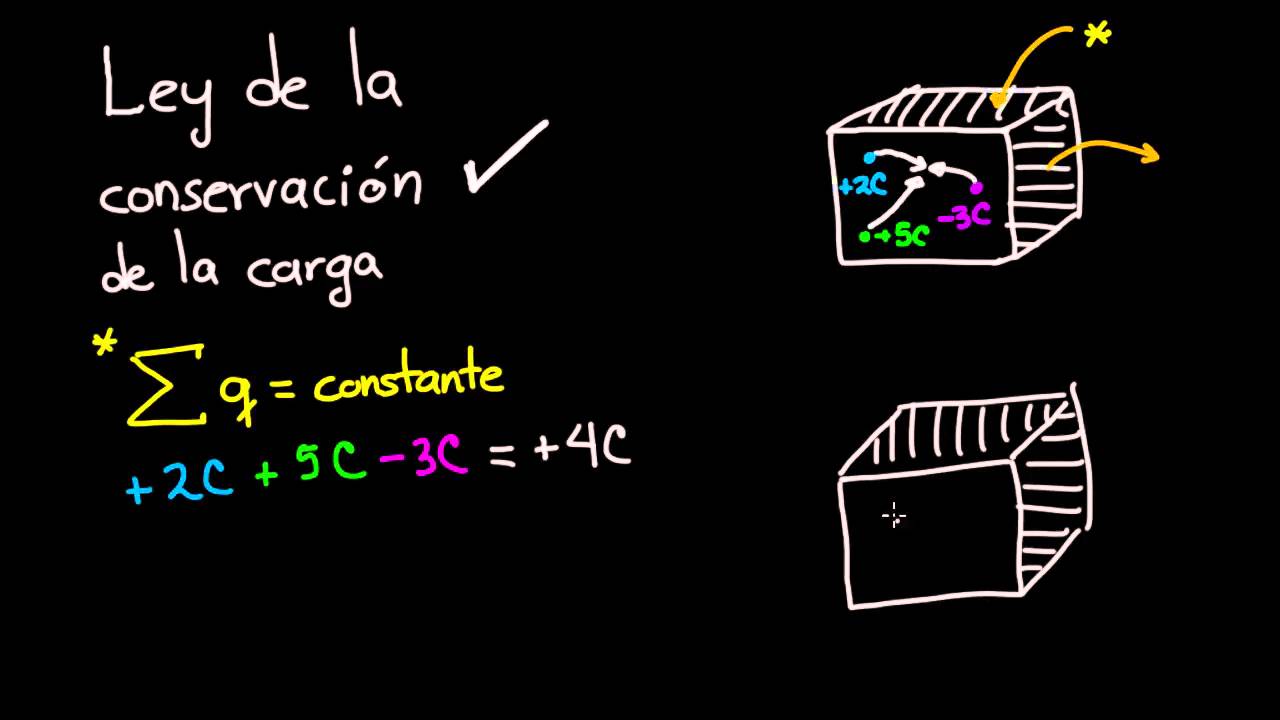 Ley de la
conservación ✓
de la carga
* ∑ q = constante
+2C + 5C - 3C = +4C
*
+2C
-3C
+5C